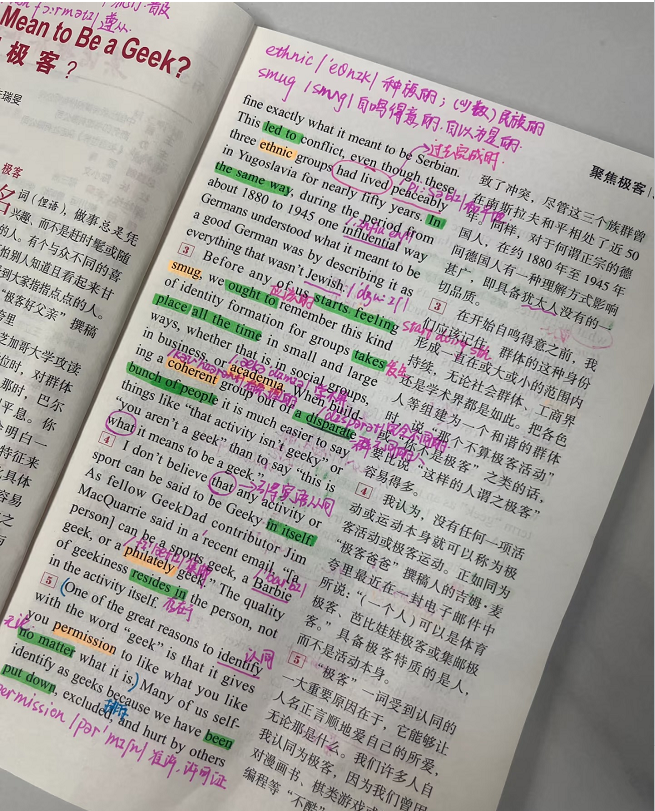 Mean to Be a Geek?
极客?
ethnic /'eθnɪk/ 种族的; (少数)民族的
smug /smʌg/ 自鸣得意的,自以为是的
聚焦极客
fine exactly what it meant to be Serbian.
This led to conflict, even though these
three ethnic groups had lived peaceably
in Yugoslavia for nearly fifty years. In
the same way, during the period from
about 1880 to 1945 one influential way
Germans understood what it meant to be
a good German was by describing it as
everything that wasn't Jewish.
3 Before any of us starts feeling
smug, we ought to remember this kind
of identity formation for groups takes
place all the time in small and large
ways, whether that is in social groups,
in business, or academia. When build-
ing a coherent group out of a disparate
bunch of people it is much easier to say
things like "that activity isn't geeky" or
"you aren't a geek" than to say "this is
what it means to be a geek."
4 I don't believe that any activity or
sport can be said to be Geeky in itself.
As fellow GeekDad contributor Jim
MacQuarrie said in a recent email, "[a
person] can be a sports geek, a Barbie
geek, or a philately geek." The quality
of geekiness resides in the person, not
in the activity itself.
5 One of the great reasons to identify
with the word "geek" is that it gives
you permission to like what you like
no matter what it is. Many of us self-
identify as geeks because we have been
put down, excluded, and hurt by others
致了冲突,尽管这三个族群曾
在南斯拉夫和平相处了近50
年。同样,对于何谓正宗的德
国人,在约1880年至1945年
间德国人有一种理解方式影响
甚广,即具备犹太人没有的一
切品质。
3 在开始自鸣得意之前,我
们应该记住,群体的这种身份
形成一直在或大或小的范围内
持续,无论社会群体、工商界
还是学术界都是如此。把各色
人等组建为一个和谐的群体
时,说“那个不算极客活动”
或“你不是极客”之类的话,
要比说“这样的人谓之极客”
容易得多。
4 我认为,没有任何一项活
动或运动本身就可以称为极
客活动或极客运动。正如同为
“极客爸爸”撰稿人的吉姆·麦
夸里最近在一封电子邮件中
所说:“(一个人)可以是体育
极客、芭比娃娃极客或集邮极
客。”具备极客特质的是人,
而不是活动本身。
5 “极客”一词受到认同的
一大重要原因在于,它能够让
人名正言顺地爱自己的所爱,
无论那是什么。我们许多人自
我认同为极客,因为我们曾因
对漫画书、棋类游戏或
编程等“不酷”
过去完成时
引导宾语从句
认同
无论
permission /pər'mɪʃn/ 准许,许可证